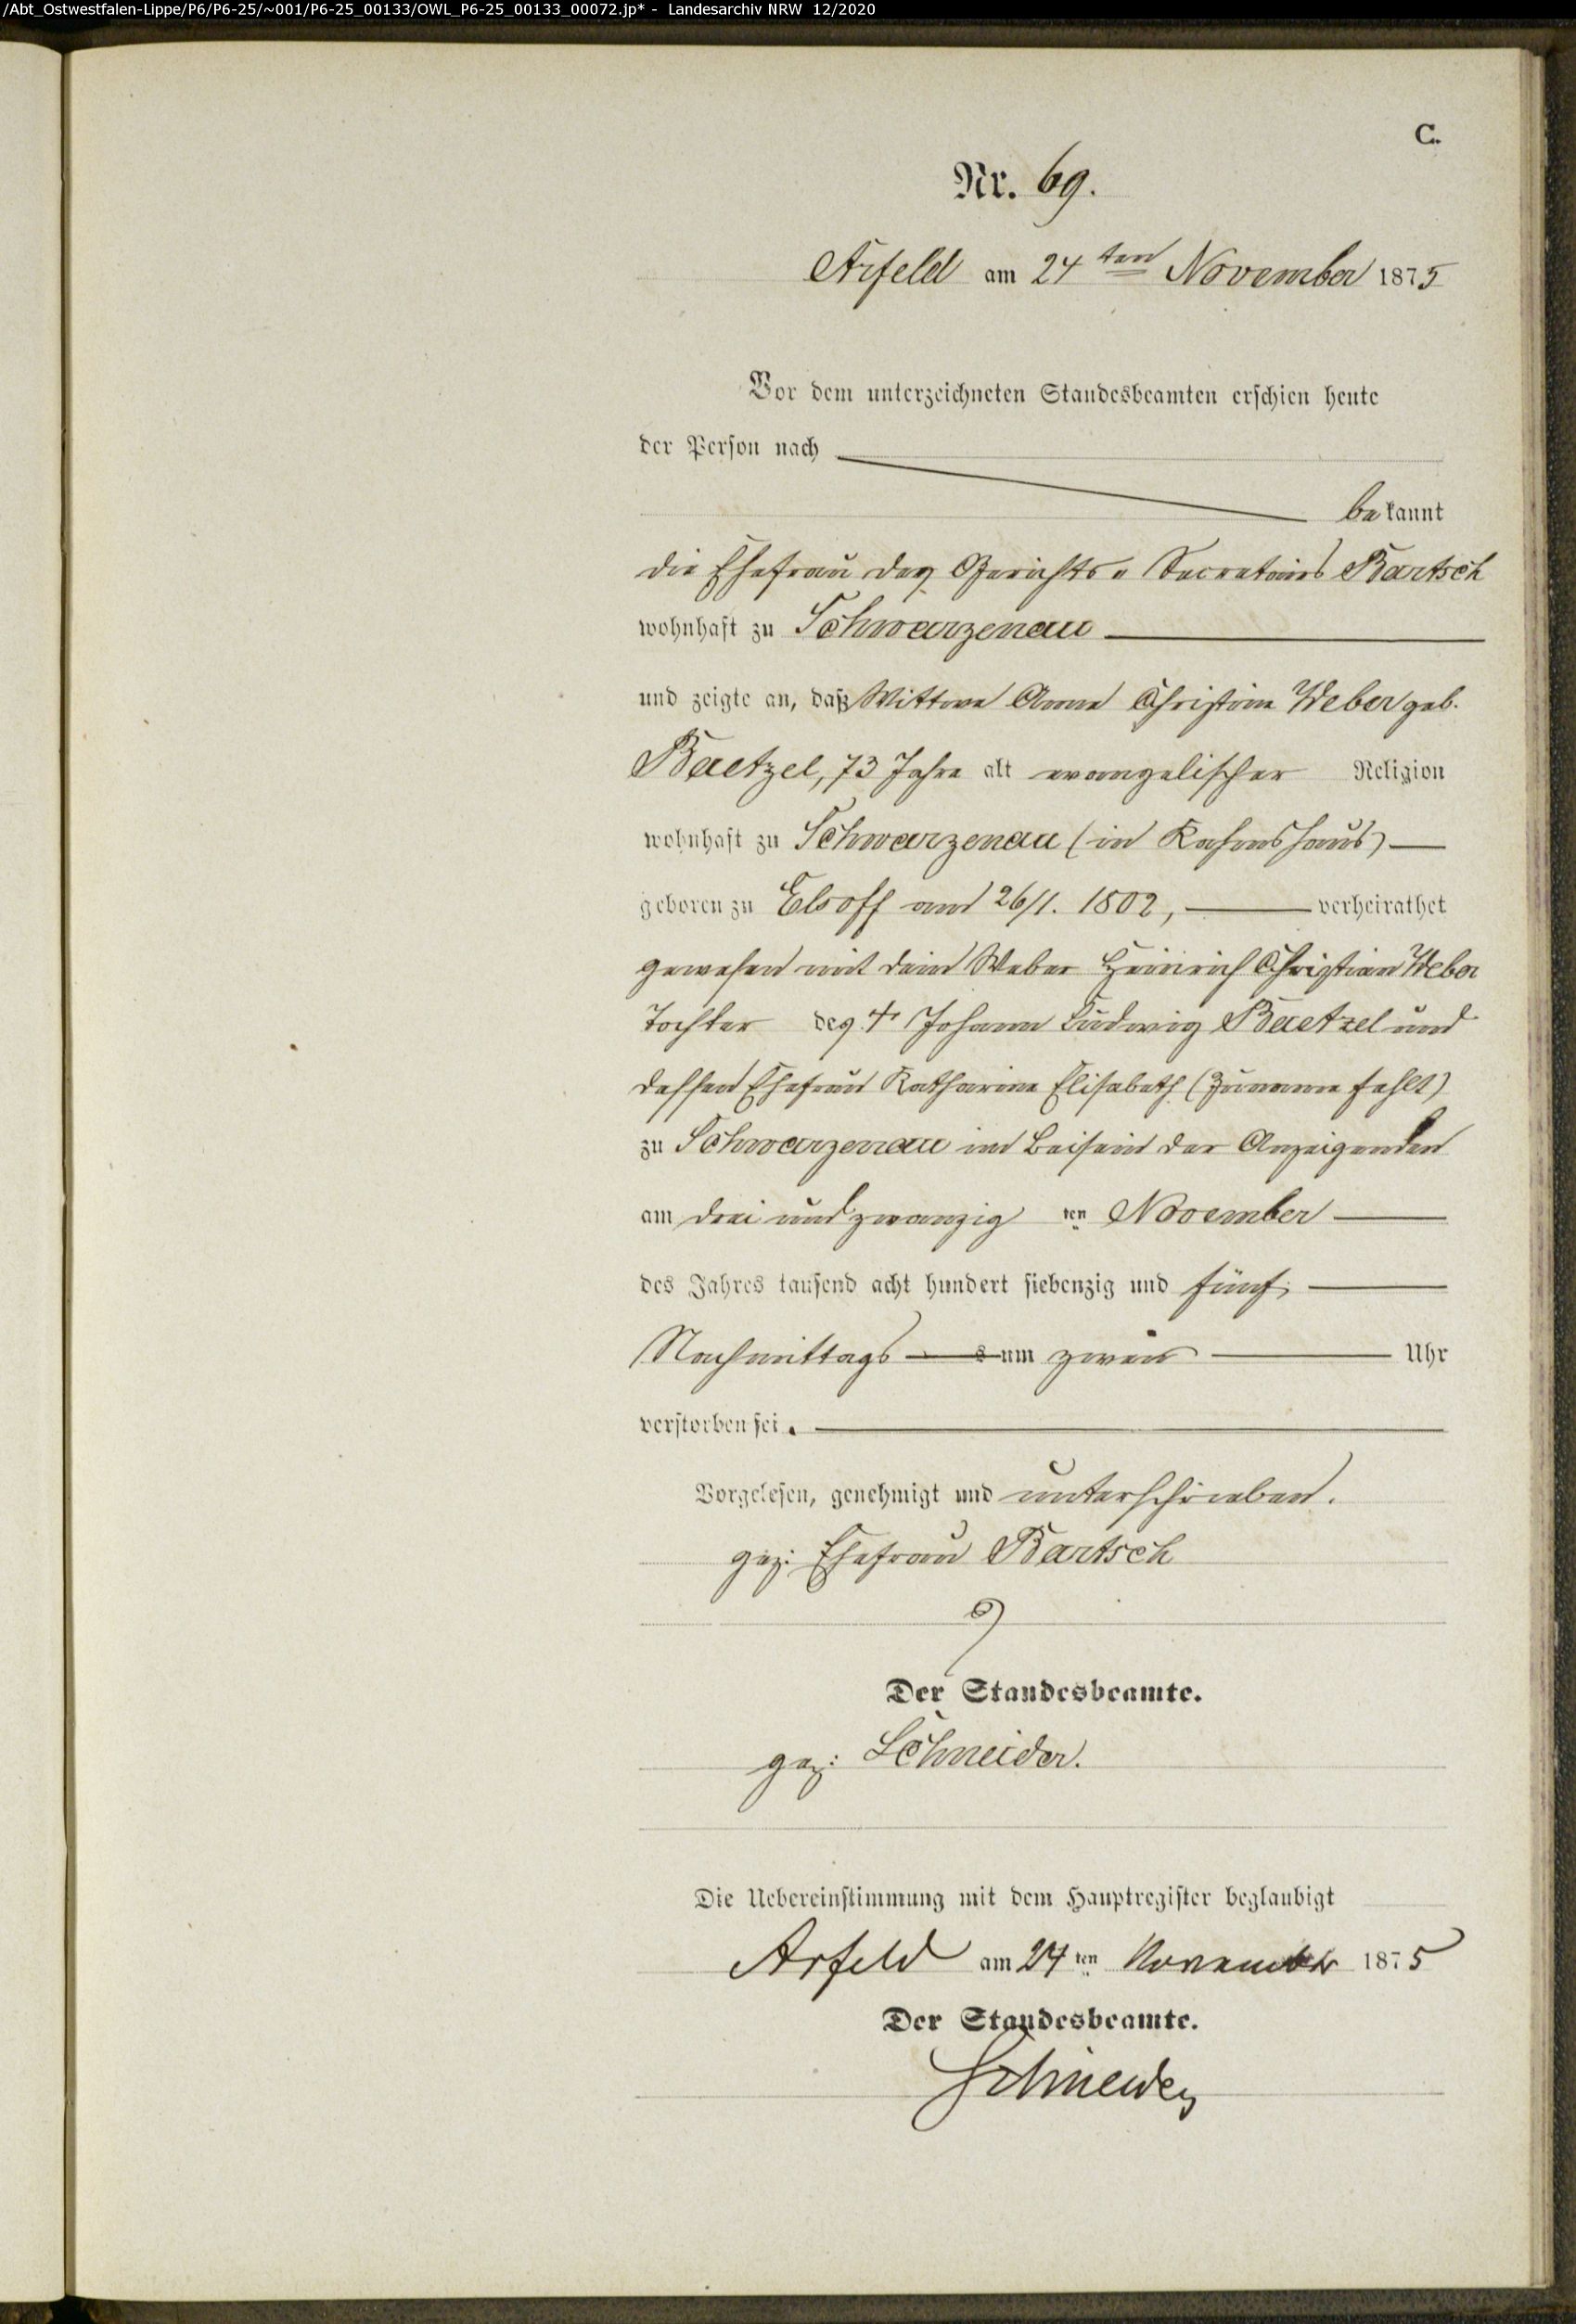 /Abt_Ostwestfalen-Lippe/P6/P6-25/~001/P6-25_00133/OWL_P6-25_00133_00072.jp* - Landesarchiv NRW 12/2020
C.
Nr. 69.
Arfeld am 24ten November 1875
Vor dem unterzeichneten Standesbeamten erschien heute
der Person nach
bekannt
die Ehefrau des Gerichts-Secretairs Bartsch
wohnhaft zu Schwarzenau
und zeigte an, daß Wittwe Anna Christine Weber geb.
Baetzel, 73 Jahre alt evangelischer Religion
wohnhaft zu Schwarzenau (in Kahnshaus)
geboren zu Elsoff am 26/1. 1802, verheirathet
gewesen mit dem Weber Heinrich Christian Weber
Tochter des † Johann Ludwig Baetzel und
dessen Ehefrau Katharine Elisabeth (Zuname fehlt)
zu Schwarzenau im Beisein der Anzeigenden
am drei und zwanzig ten November
des Jahres tausend acht hundert siebenzig und fünf,
Nachmittags um zwei Uhr
verstorben sei.
Vorgelesen, genehmigt und unterschrieben.
gez: Ehefrau Bartsch
Der Standesbeamte.
gez: Schneider.
Die Uebereinstimmung mit dem Hauptregister beglaubigt
Arfeld am 24ten November 1875
Der Standesbeamte.
Schneider